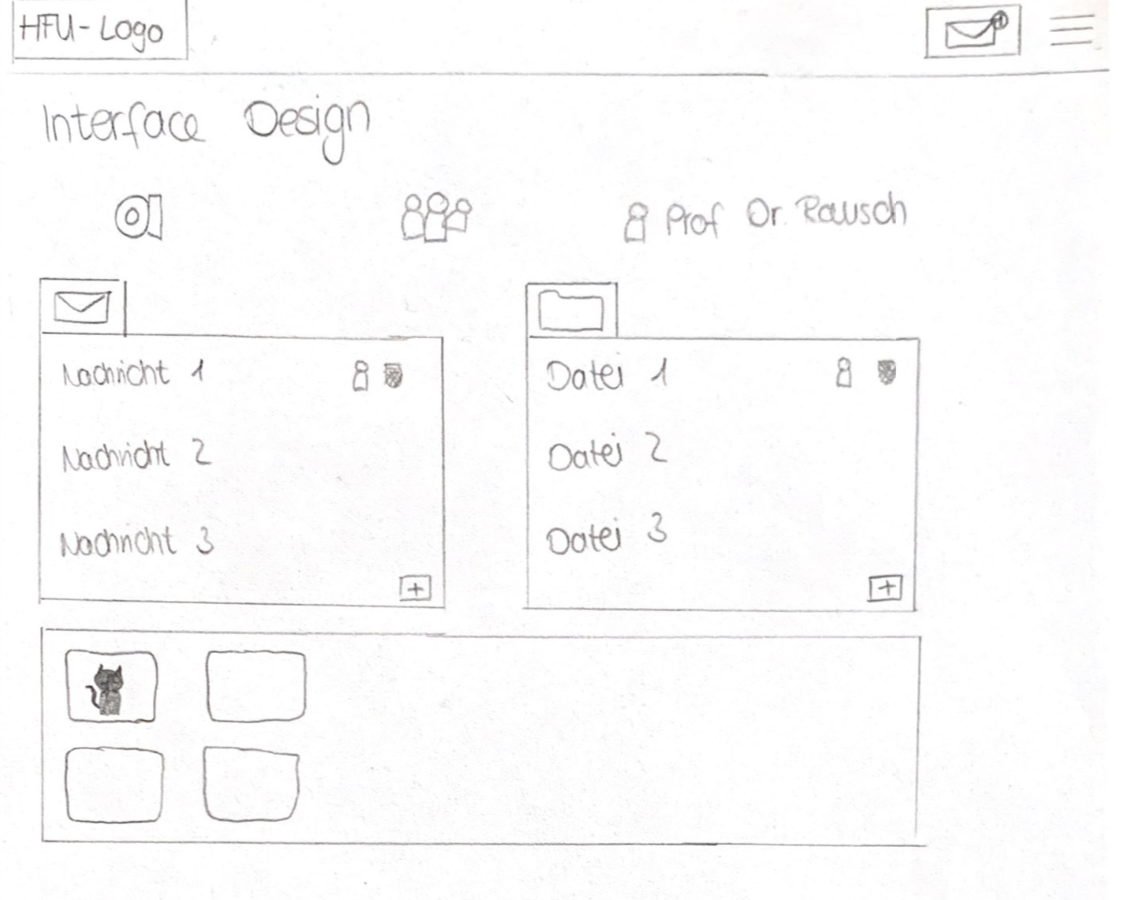 HFU-Logo
Interface Design
Prof Dr. Rausch
Nachricht 1
Nachricht 2
Nachricht 3
Datei 1
Datei 2
Datei 3